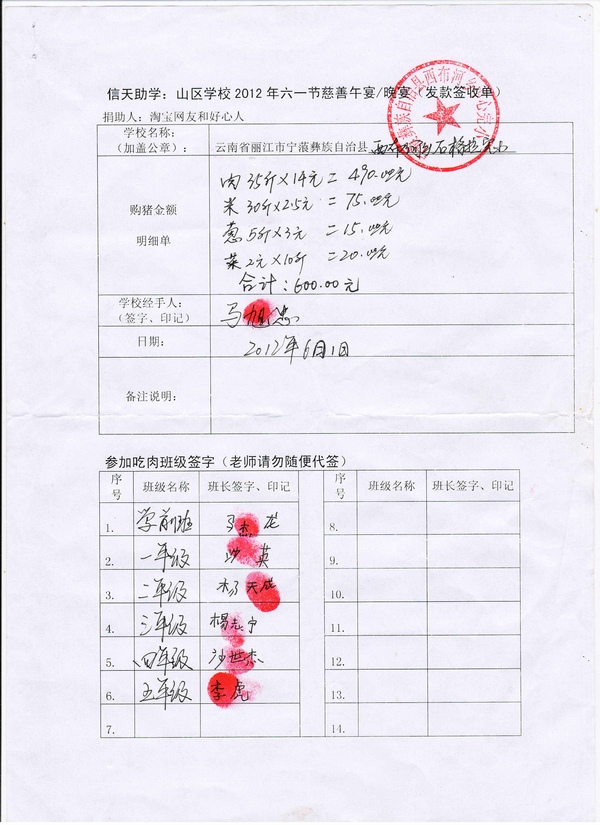 信天助学：山区学校2012年六一节慈善午宴/晚宴（发款签收单）
捐助人：淘宝网友和好心人
学校名称：
（加盖公章）：
云南省丽江市宁蒗彝族自治县
购猪金额
明细单
肉 35斤×14元＝490.00元
米 30斤×2.5元＝75.00元
葱 5斤×3元＝15.00元
菜 2元×10斤＝20.00元
合计：600.00元
学校经手人：
（签字、印记）
马旭忠
日期：
2012年6月1日
备注说明：
参加吃肉班级签字（老师请勿随便代签）
序号 班级名称 班长签字、印记 序号 班级名称 班长签字、印记
1. 学前班 马杰龙 8.
2. 一年级 沙英 9.
3. 二年级 杨天成 10.
4. 三年级 杨志宁 11.
5. 四年级 沙世杰 12.
6. 五年级 李虎 13.
7. 14.